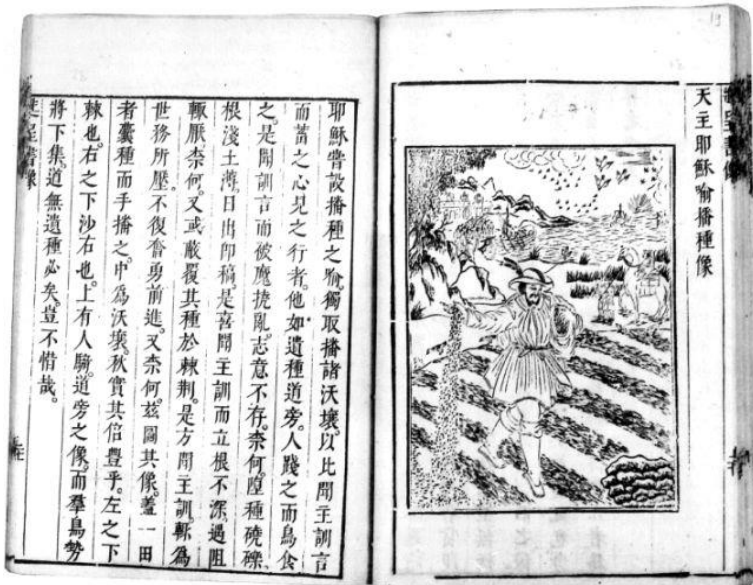 天主耶穌喻播種像
耶穌嘗設播種之喻。獨取播諸沃壤。以比聞主訓言
而蓄之心見之行者。他如遺種道旁。人踐之而鳥食
之。是聞訓言而被魔撓亂。志意不存。柰何。墮種磽礫。
根淺土薄。日出即稿。是喜聞主訓而立根不深。遇阻
輒厭柰何。又或蔽覆其種於棘荆。是方聞主訓。輒為
世務所壓。不復奮勇前進。又柰何。茲圖其像。葢一田
者囊種而手播之。中為沃壤。秋實其倍豐乎。左之下
棘也。右之下沙石也。上有人騎。道旁之像。而羣鳥勢
將下集。道無遺種必矣。豈不惜哉。